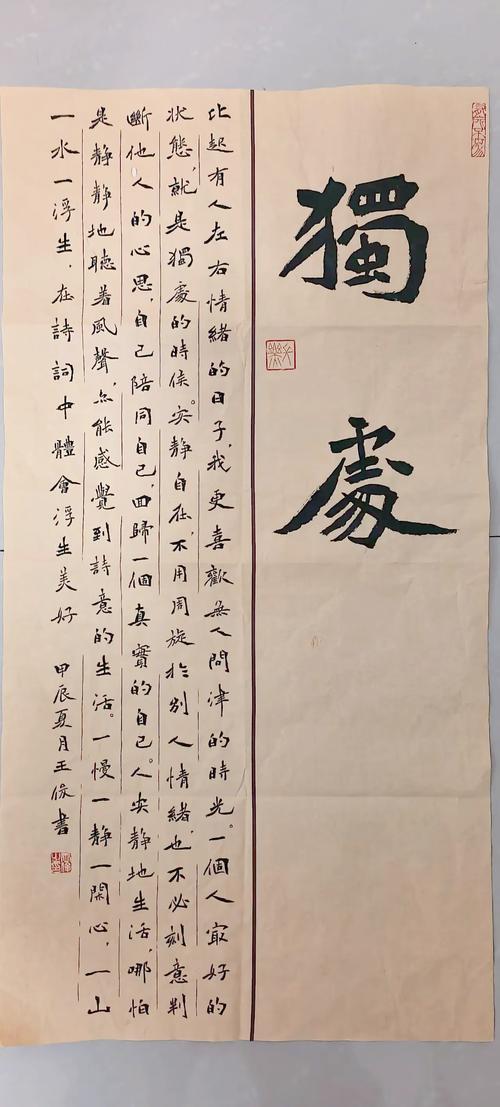 獨處
比起有人左右情緒的日子,我更喜歡無人問津的時光。一個人最好的
狀態,就是獨處的時候。安靜自在,不用周旋於别人情緒,也不必刻意判
斷他人的心思,自己陪同自己,回歸一個真實的自己。人安靜地生活,哪怕
是靜靜地聽著風聲,亦能感覺到詩意的生活。一慢一靜一閑心,一山
一水一浮生,在詩詞中體會浮生美好 甲辰夏月王書